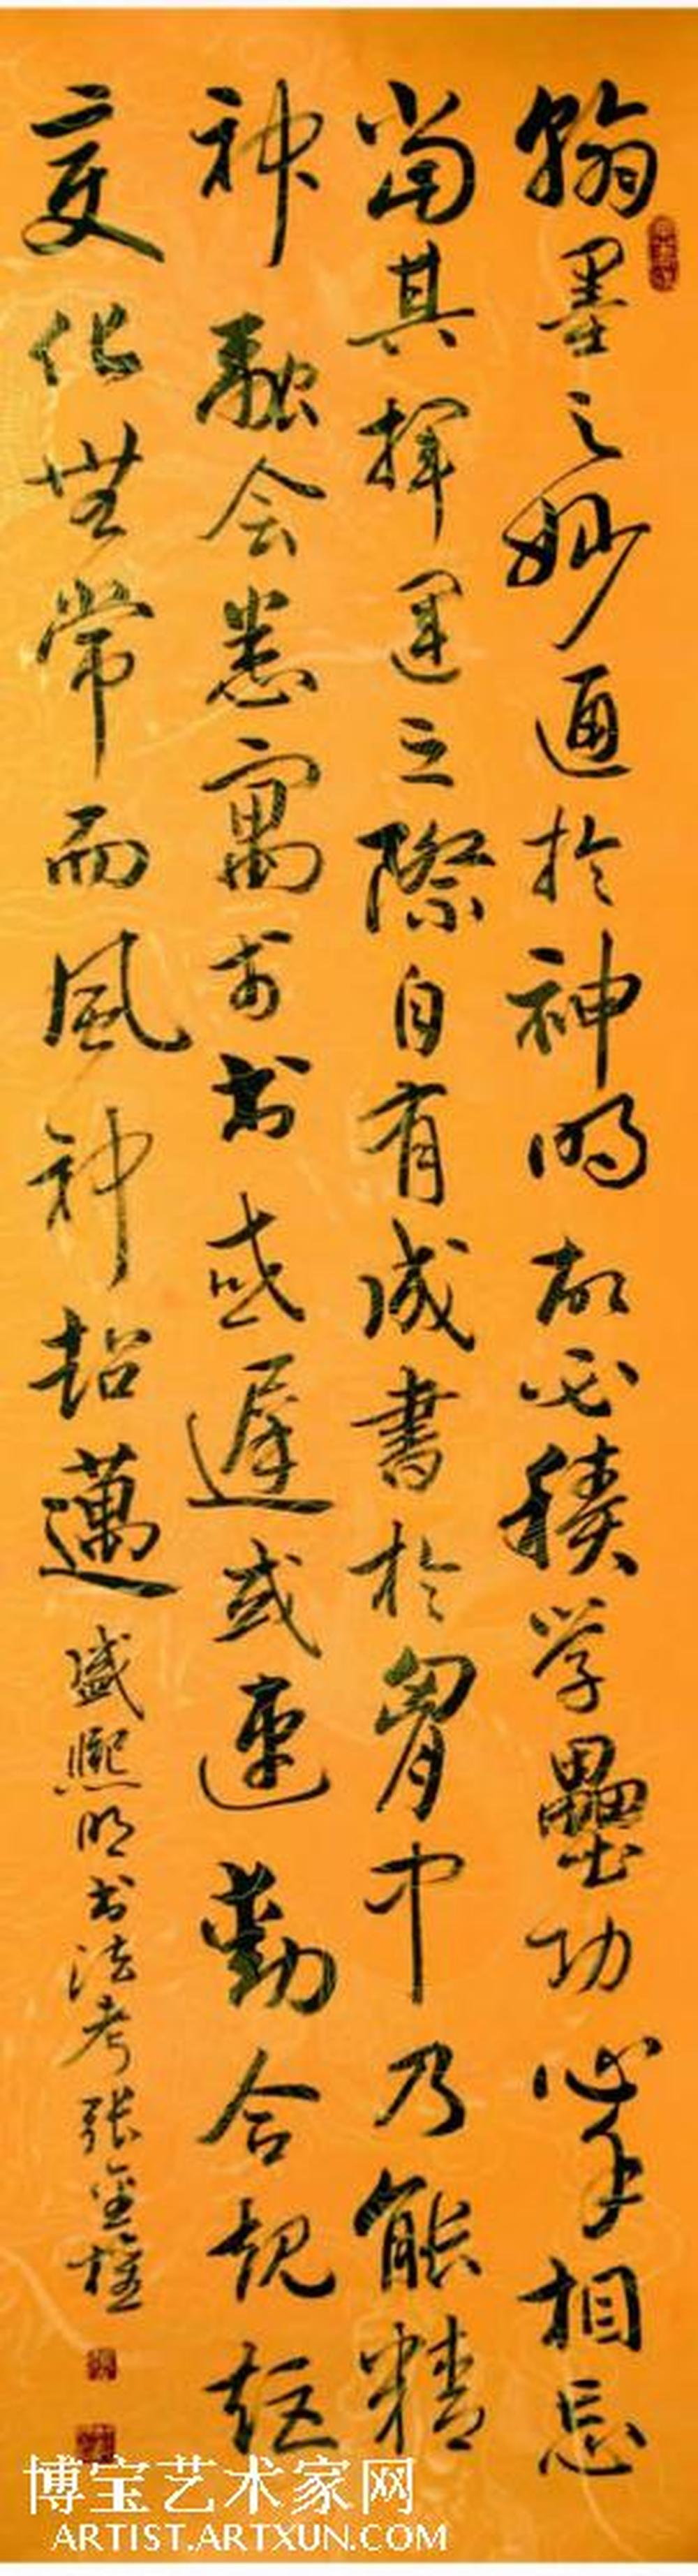 翰墨之妙通於神明故必積学壘功心手相忘
當其揮運之際自有成書於胷中乃能精
神融会悉寓於书或遲或速動合規矩
变化無常而風神超邁
盛熙明书法考张金
博宝艺术家网
ARTIST.ARTXUN.COM